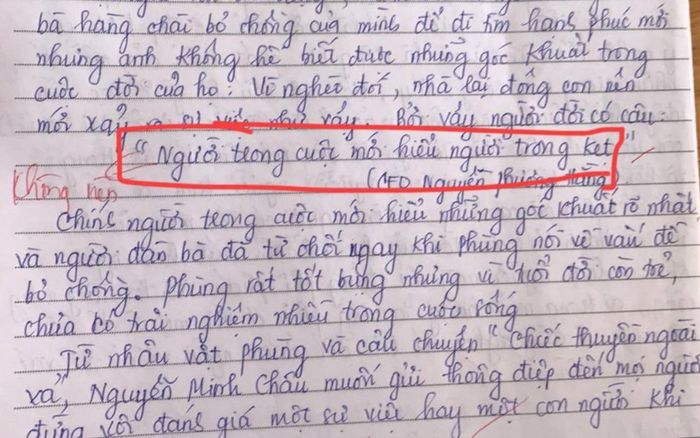 bà hàng chài bỏ chồng của mình để đi tìm hạnh phúc mới
nhưng anh không hề biết được những góc khuất trong
cuộc đời của họ. Vì nghèo đói, nhà lại đông con nên
mới xảy ra sự việc như vậy. Bởi vậy người đời có câu:
"Người trong cuộc mới hiểu người trong kẹt"
(CEO Nguyễn Phương Hằng)
Không nên
Chính người trong cuộc mới hiểu những góc khuất rõ nhất
và người đàn bà đã từ chối ngay khi Phùng nói về vấn đề
bỏ chồng. Phùng rất tốt bụng nhưng vì tuổi đời còn trẻ,
chưa có trải nghiệm nhiều trong cuộc sống
Từ nhân vật Phùng và câu chuyện "Chiếc thuyền ngoài
xa", Nguyễn Minh Châu muốn gửi thông điệp đến mọi người
đừng vội đánh giá một sự việc hay một con người khi